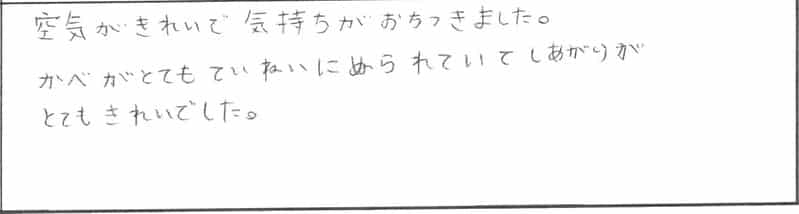 空気がきれいで気持ちがおちつきました。
かべがとてもていねいにぬられていてしあがりが
とてもきれいでした。